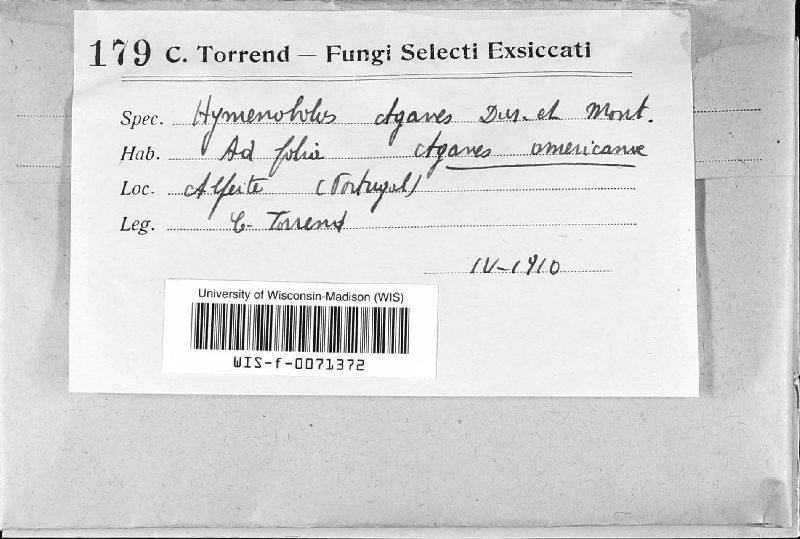 179 C. Torrend — Fungi Selecti Exsiccati
Spec. Hymenobolus Agaves Dur. et Mont.
Hab. Ad folia Agaves americanae
Loc. Alfeite (Portugal)
Leg. C. Torrend
IV-1910
University of Wisconsin-Madison (WIS)
WIS-f-0071372